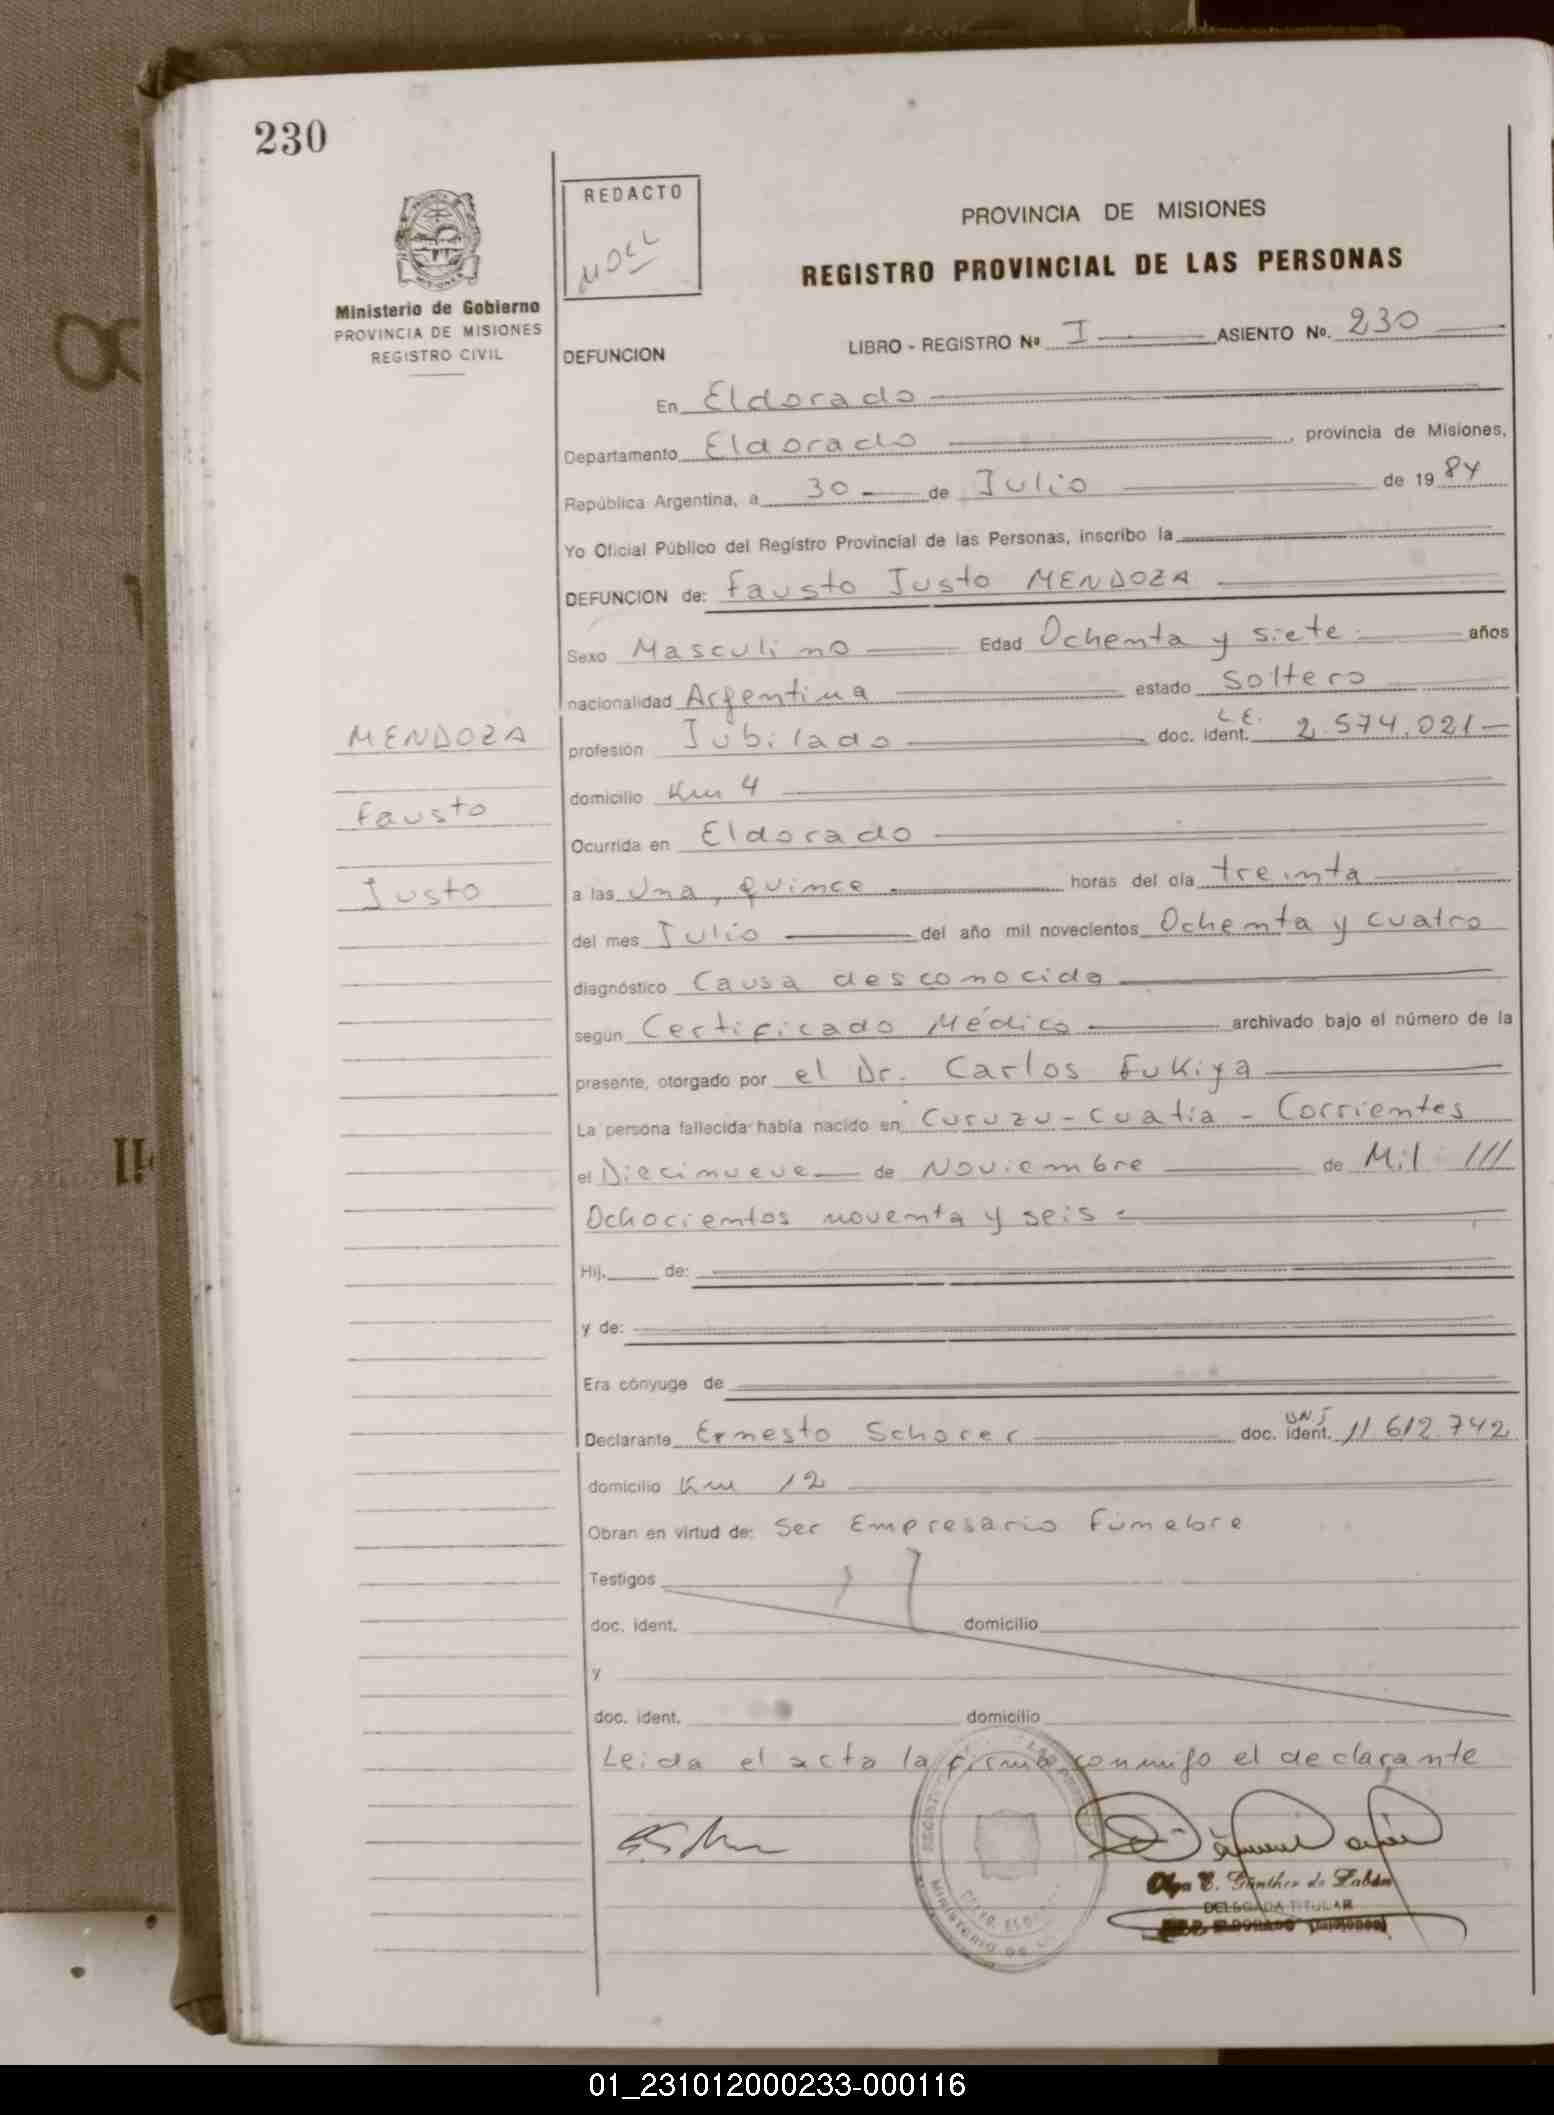 230
REDACTO
PROVINCIA DE MISIONES
REGISTRO PROVINCIAL DE LAS PERSONAS
Ministerio de Gobierno
PROVINCIA DE MISIONES
REGISTRO CIVIL
DEFUNCION
LIBRO - REGISTRO Nº I ASIENTO Nº. 230
En Eldorado
Departamento Eldorado, provincia de Misiones,
República Argentina, a 30 de Julio de 1984
Yo Oficial Público del Registro Provincial de las Personas, inscribo la
DEFUNCION de: Fausto Justo MENDOZA
Sexo Masculino Edad Ochenta y siete años
nacionalidad Argentina estado Soltero
MENDOZA
Fausto
Justo
profesión Jubilado doc. ident. L.E. 2.574.021-
domicilio Km 4
Ocurrida en Eldorado
a las Una, quince horas del día treinta
del mes Julio del año mil novecientos Ochenta y cuatro
diagnóstico Causa desconocida
según Certificado Médico archivado bajo el número de la
presente, otorgado por el Dr. Carlos Fukiya
La persona fallecida había nacido en Curuzu-Cuatia - Corrientes
el Diecinueve de Noviembre de Mil ///
Ochocientos noventa y seis.
Hij. de:
y de:
Era cónyuge de
Declarante Ernesto Schorer doc. ident. 11 612.742
domicilio Km 12
Obran en virtud de: Ser Empresario Fúnebre
Testigos
doc. ident. domicilio
y
doc. ident. domicilio
Leida el acta la firma conmigo el declarante
Olga E. Günther de Zabán
DELEGADA TITULAR
01_231012000233-000116